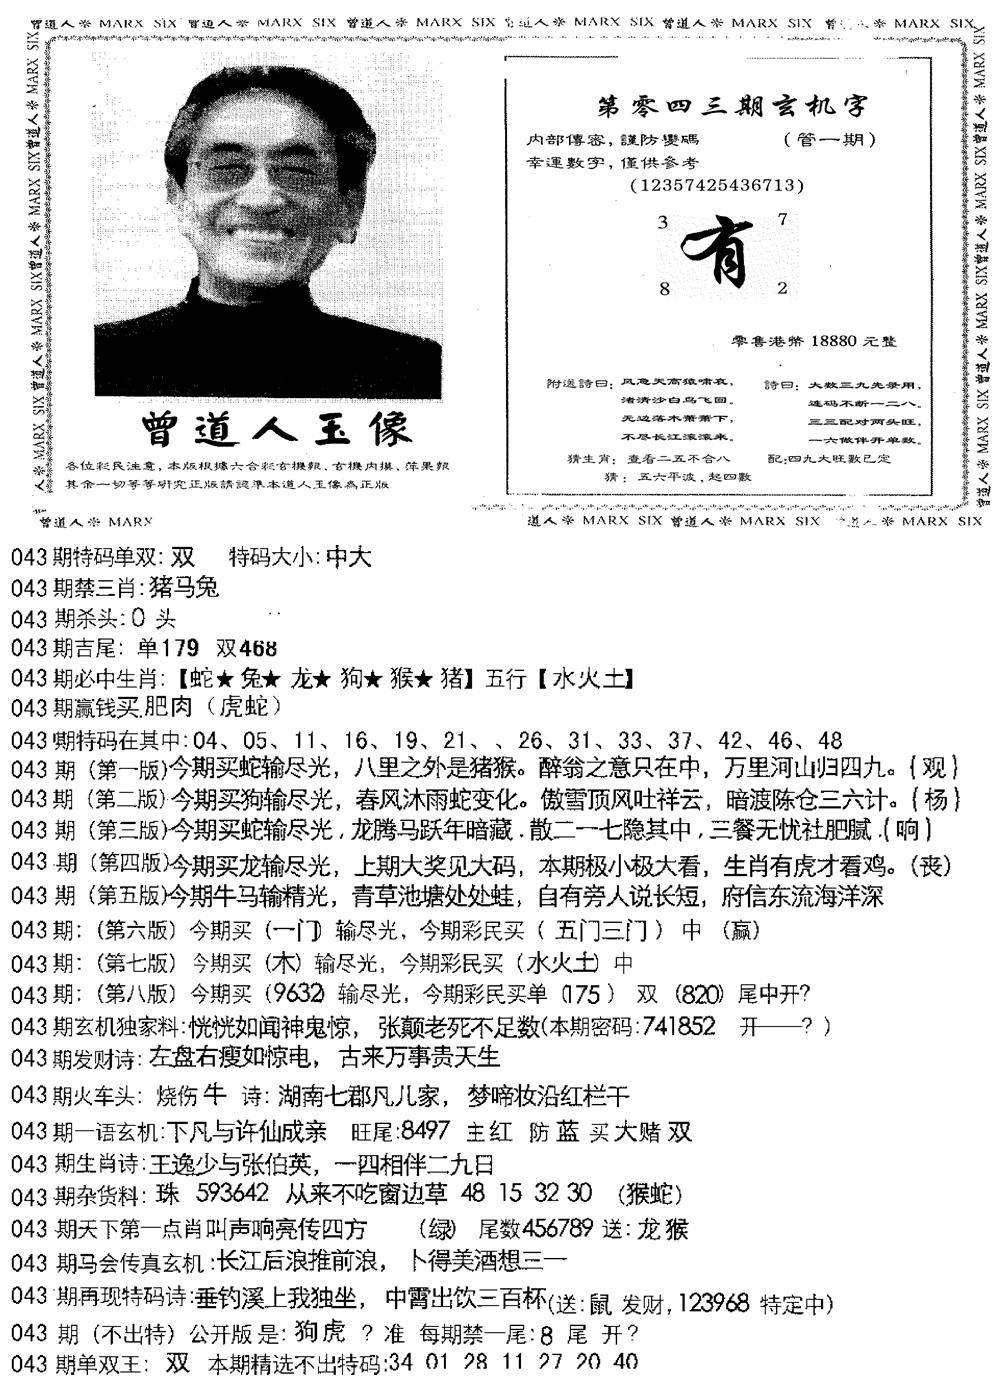 曾道人※ MARX SIX 曾道人※ MARX SIX 曾道人※ MARX SIX 曾道人※ MARX SIX 曾道人※ MARX SIX 曾道人※ MARX SIX
第零四三期玄机字
内部傳密，謹防變碼 （管一期）
幸運數字，僅供參考
(12357425436713)
3 7
有
8 2
零售港幣 18880 元整
附送詩曰：风急天高猿啸哀，
渚清沙白鸟飞回。
无边落木萧萧下，
不尽长江滚滚来。
詩曰：大数三九先录用，
连码不断一二八。
三三配对两头旺，
一六做伴开单数。
猜生肖：查看二五不合八 配:四九大旺數已定
猜：五六平波，起四數
曾道人玉像
各位彩民注意，本版根據六合彩玄機報、玄機内摸、萍果報
其余一切等等研究正版請認準本道人玉像為正版
曾道人※ MARX
道人※ MARX SIX 曾道人※ MARX SIX MARX SIX
043 期特码单双: 双 特码大小:中大
043 期禁三肖:猪马兔
043 期杀头:0 头
043 期吉尾: 单179 双468
043 期必中生肖:【蛇★兔★龙★狗★猴★猪】五行【水火土】
043 期赢钱买肥肉（虎蛇）
043 期特码在其中:04、05、11、16、19、21、、26、31、33、37、42、46、48
043 期（第一版)今期买蛇输尽光，八里之外是猪猴。醉翁之意只在中，万里河山归四九。{观}
043 期（第二版)今期买狗输尽光，春风沐雨蛇变化。傲雪顶风吐祥云，暗渡陈仓三六计。{杨}
043 期（第三版)今期买蛇输尽光，龙腾马跃年暗藏．散二一七隐其中，三餐无忧社肥腻．{响}
043 期（第四版)今期买龙输尽光，上期大奖见大码，本期极小极大看，生肖有虎才看鸡。(丧)
043 期（第五版)今期牛马输精光，青草池塘处处蛙，自有旁人说长短，府信东流海洋深
043 期:（第六版）今期买（一门）输尽光，今期彩民买（五门三门）中（赢）
043 期:（第七版）今期买（木）输尽光，今期彩民买（水火土）中
043 期:（第八版）今期买（9632）输尽光，今期彩民买单（175）双（820）尾中开?
043 期玄机独家料:恍恍如闻神鬼惊，张颠老死不足数(本期密码:741852 开——？)
043 期发财诗:左盘右瘦如惊电，古来万事贵天生
043 期火车头: 烧伤牛 诗: 湖南七郡凡几家，梦啼妆沿红栏干
043 期一语玄机:下凡与许仙成亲 旺尾:8497 主红 防蓝 买大赌双
043 期生肖诗:王逸少与张伯英，一四相伴二九日
043 期杂货料: 珠 593642 从来不吃窗边草 48 15 32 30（猴蛇）
043 期天下第一点肖叫声响亮传四方（绿） 尾数456789 送:龙猴
043 期马会传真玄机:长江后浪推前浪，卜得美酒想三一
043 期再现特码诗:垂钓溪上我独坐，中霄出饮三百杯(送:鼠 发财,123968 特定中)
043 期（不出特）公开版是: 狗虎 ? 准 每期禁一尾:8 尾 开?
043 期单双王: 双 本期精选不出特码:34 01 28 11 27 20 40